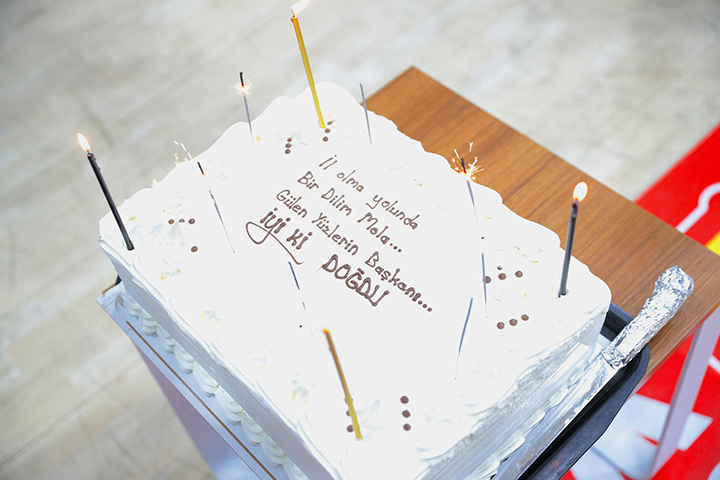 İl olma yolunda
Bir Dilim Mola...
Gülen Yüzlerin Başkanı...
iyi ki DOĞDU